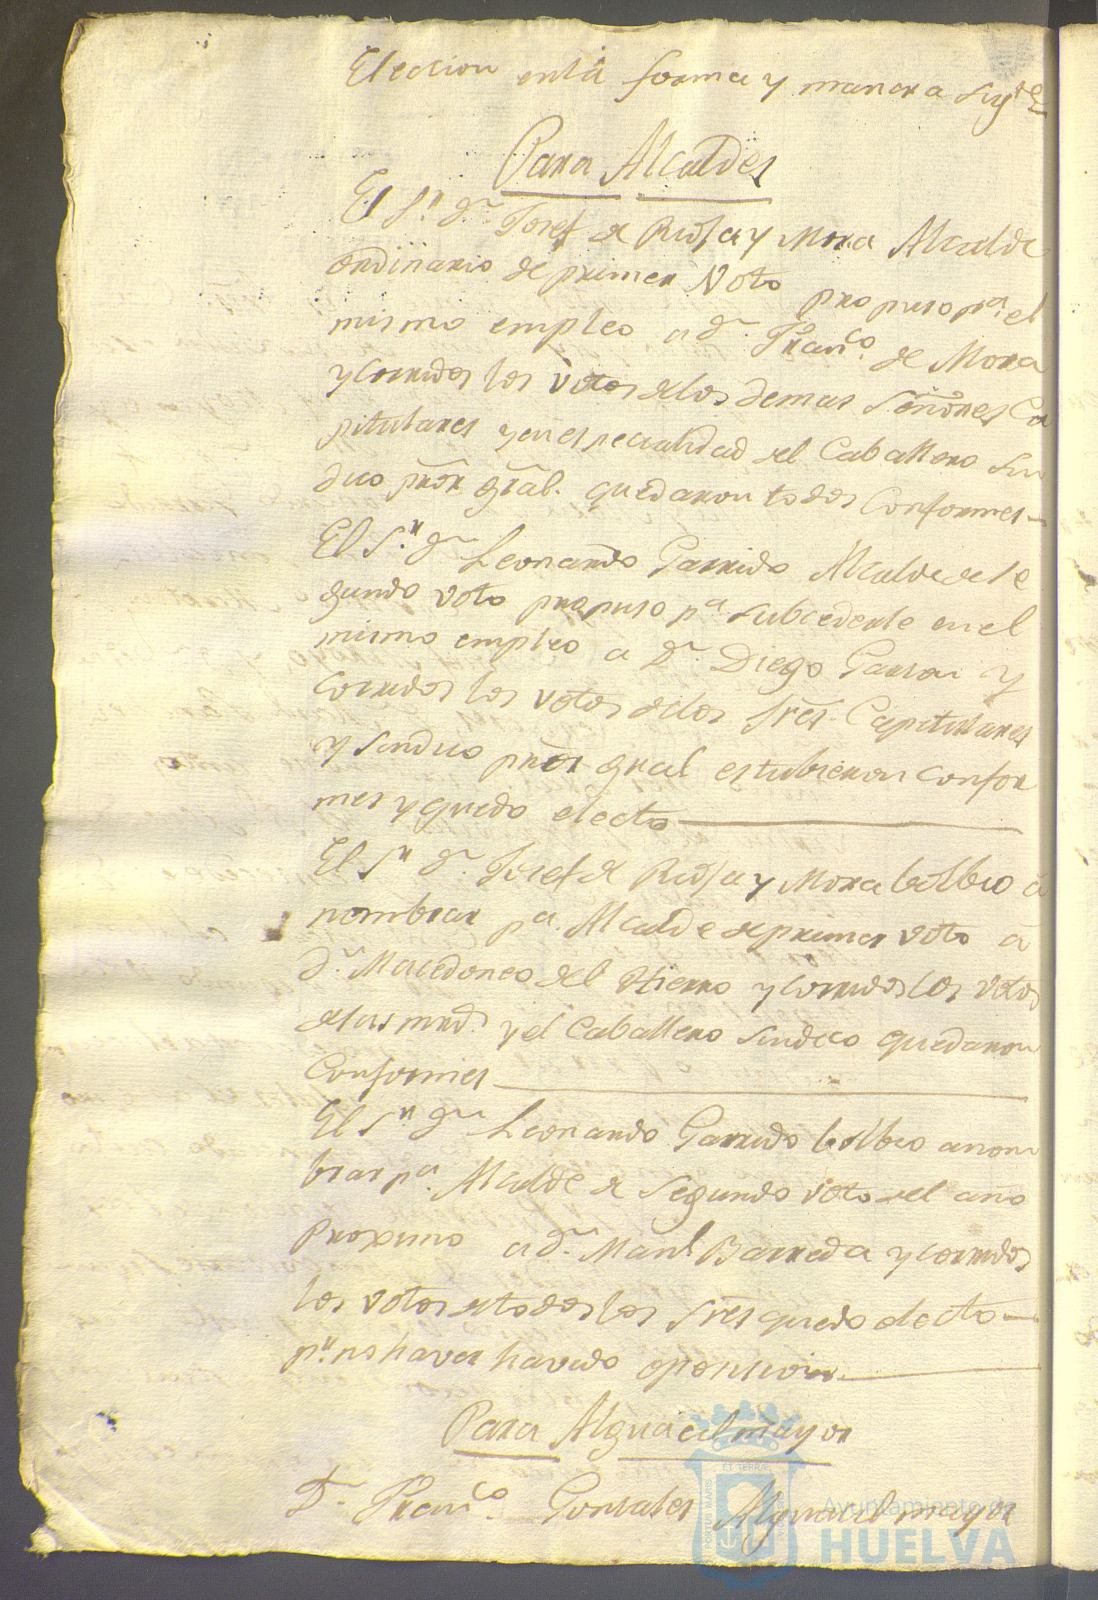 Eleccion enla forma y manera sigte
Para Alcaldes
El Sr. Dn. Josef de Rioja y Mora Alcalde
ordinario de primer Voto propuso pa. el
mismo empleo a Dn. Franco. de Mora
y corridos los votos delos demas Señores Ca
pitulares y en especialidad del Caballero Sin
dico pror gral. quedaron todos Conformes
El Sr. Dn. Leonardo Garrido Alcalde de se
gundo voto propuso pa. subcederle en el
mismo empleo a Dn. Diego Garzon y
corridos los votos delos Sres. Capitulares
y Sindico pror gral estubieron confor
mes y quedo electo
El Sr. Dn. Josef de Rioja y Mora bolbio á
nombrar pa. Alcalde de primer voto a
Dn. Macedoneo del Hierro y corridos los votos
de sus mrds. y el Caballero Sindico quedaron
Conformes
El Sr. Dn. Leonardo Garrido bolbio a nom
brar pa. Alcalde de Segundo voto del año
proximo a Dn. Manl. Barreda y corridos
los votos de todos los Sres quedo electo
pr. no haver havido oposicion.
Para Alguacil mayor
Dn. Franco. Gonsales Alguacil mayor
Ayuntamiento de
HUELVA